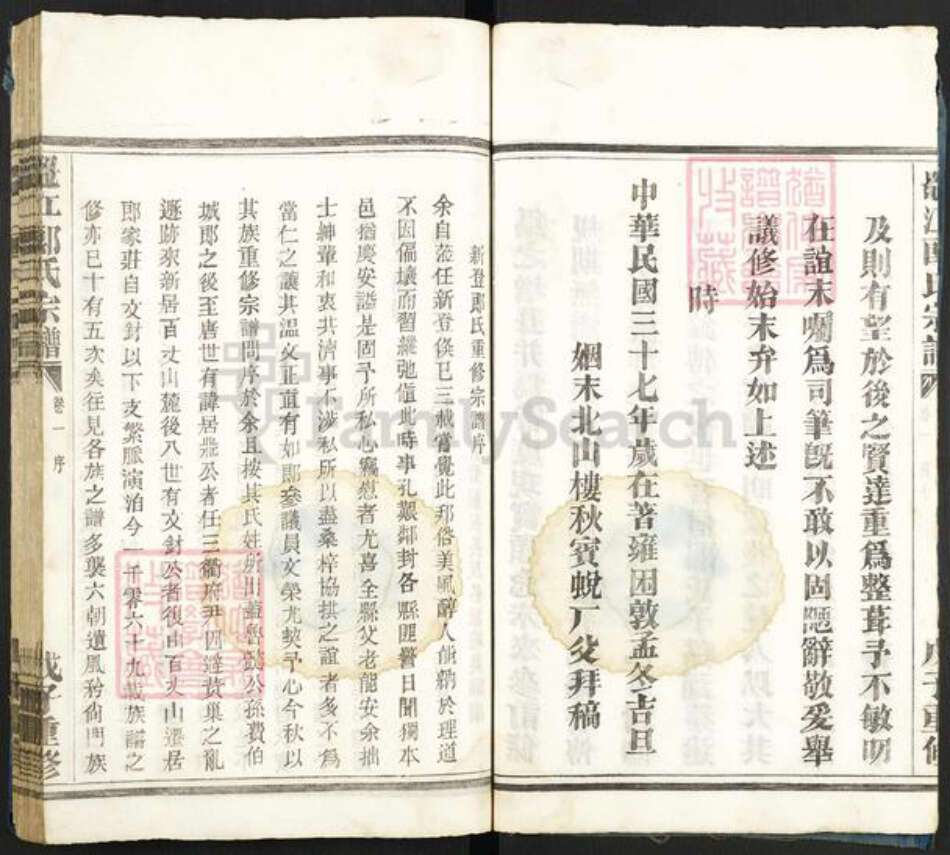 及則有望於後之賢達重為整葺予不敏叨
在誼末囑為司筆旣不敢以固陋辭敬爰舉
議修始末弁如上述
時
中華民國三十七年歲在著雍困敦孟冬吉旦
姻末北山樓秋賓蛻厂父拜稿
新登郎氏重修宗譜序
余自蒞任新登倐已三載嘗覺此邦俗美風醇人皆納於理道
不因偏壤而習縱弛值此時事孔艱鄰封各縣匪警日聞獨本
邑猶慶安謐是固予所私心竊慰者尤喜全縣父老能安余拙
士紳輩和衷共濟事不涉私所以盡桑梓協拱之誼者多不為
當仁之讓其溫文正直有如郎參議員文榮尤契予心今秋以
其族重修宗譜問序於余且按其氏姓所出蓋魯懿公孫費伯
城郎之後至唐世有諱居業公者任三衢府尹因避黃巢之亂
遯跡來新居百丈山麓後八世有文封公者復由百丈山遷居
郎家莊自文封以下支繁脈演洎今一千零六十九載族譜之
修亦已十有五次矣往見各族之譜多襲六朝遺風矜尚門族
氏宗譜
卷一 序
戊子重修
FamilySearch